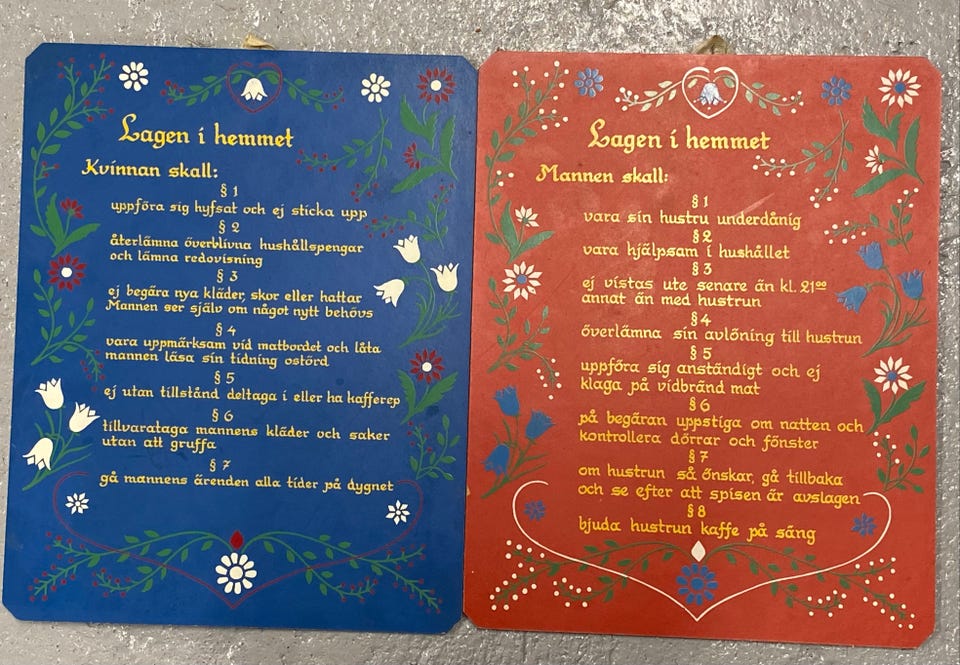 Lagen i hemmet
Kvinnan skall:
§ 1
uppföra sig hyfsat och ej sticka upp
§ 2
återlämna överblivna hushållspengar
och lämna redovisning
§ 3
ej begära nya kläder, skor eller hattar
Mannen ser själv om något nytt behövs
§ 4
vara uppmärksam vid matbordet och låta
mannen läsa sin tidning ostörd
§ 5
ej utan tillstånd deltaga i eller ha kafferep
§ 6
tillvarataga mannens kläder och saker
utan att gruffa
§ 7
gå mannens ärenden alla tider på dygnet
Lagen i hemmet
Mannen skall:
§ 1
vara sin hustru underdånig
§ 2
vara hjälpsam i hushållet
§ 3
ej vistas ute senare än kl. 21⁰⁰
annat än med hustrun
§ 4
överlämna sin avlöning till hustrun
§ 5
uppföra sig anständigt och ej
klaga på vidbränd mat
§ 6
på begäran uppstiga om natten och
kontrollera dörrar och fönster
§ 7
om hustrun så önskar, gå tillbaka
och se efter att spisen är avslagen
§ 8
bjuda hustrun kaffe på säng